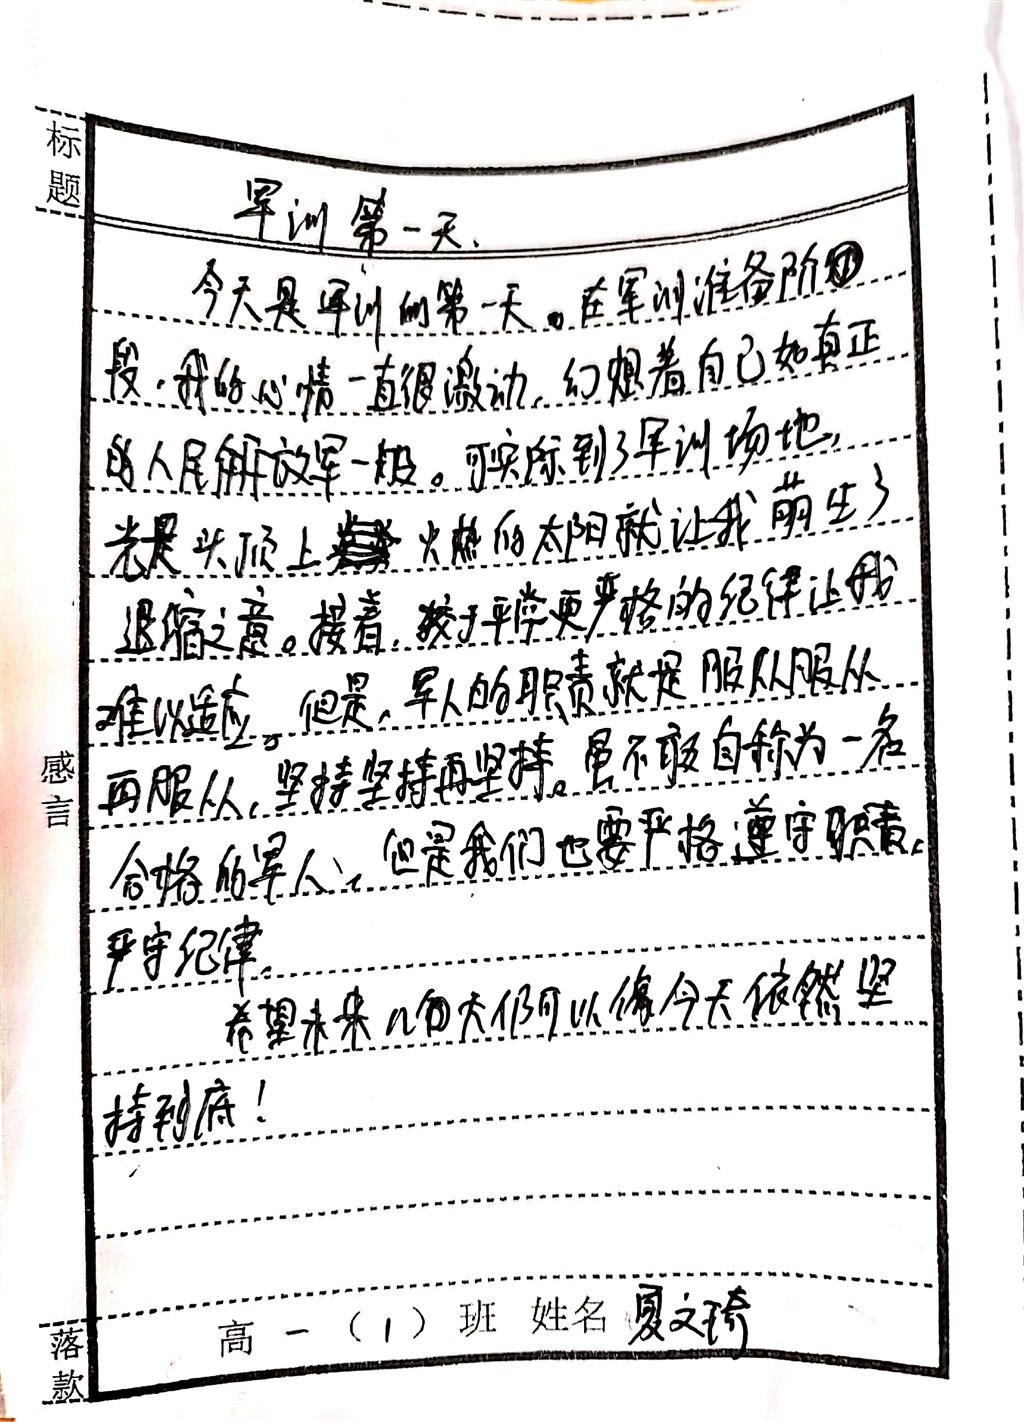 标题
军训第一天
今天是军训的第一天。在军训准备阶
段,我的心情一直很激动,幻想着自己如真正
的人民解放军一般。可实际到了军训场地,
光是头顶上火热的太阳就让我萌生了
退缩之意。接着,较于平常更严格的纪律让我
难以适应。但是,军人的职责就是服从服从
再服从,坚持坚持再坚持。虽不敢自称为一名
合格的军人,但是我们也要严格遵守职责,
严守纪律。
希望未来几天仍可以像今天依然坚
持到底!
感言
高一(1)班 姓名 夏文琦
落款